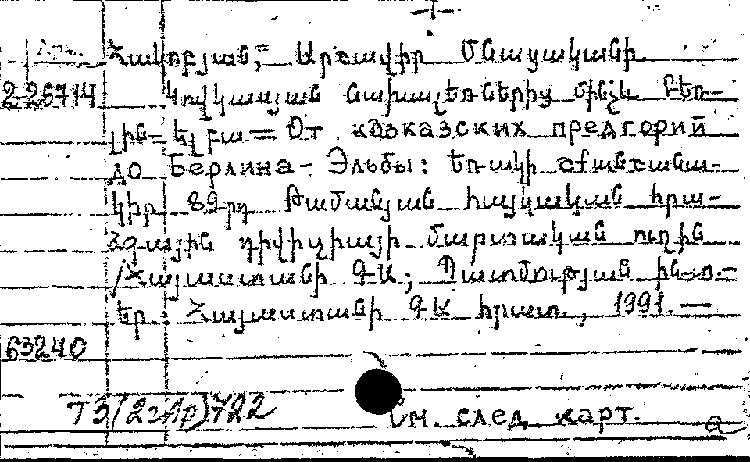 Հակոբյան, Արշավիր Մնացականի
2-26714 Կովկասյան նախալեռներից մինչև Բեռ-
լին-Էլբա = От кавказских предгорий
до Берлина - Эльбы: Եռակի շքանշանա-
կիր 89-րդ Թամանյան հայկական հրա-
ձգային դիվիզիայի մարտական ուղին
/Հայաստանի ԳԱ; Պատմության ին-տ-
Եր.: Հայաստանի ԳԱ հրատ., 1991. —
63240
Т3(2=Ар)722
См. след. карт.